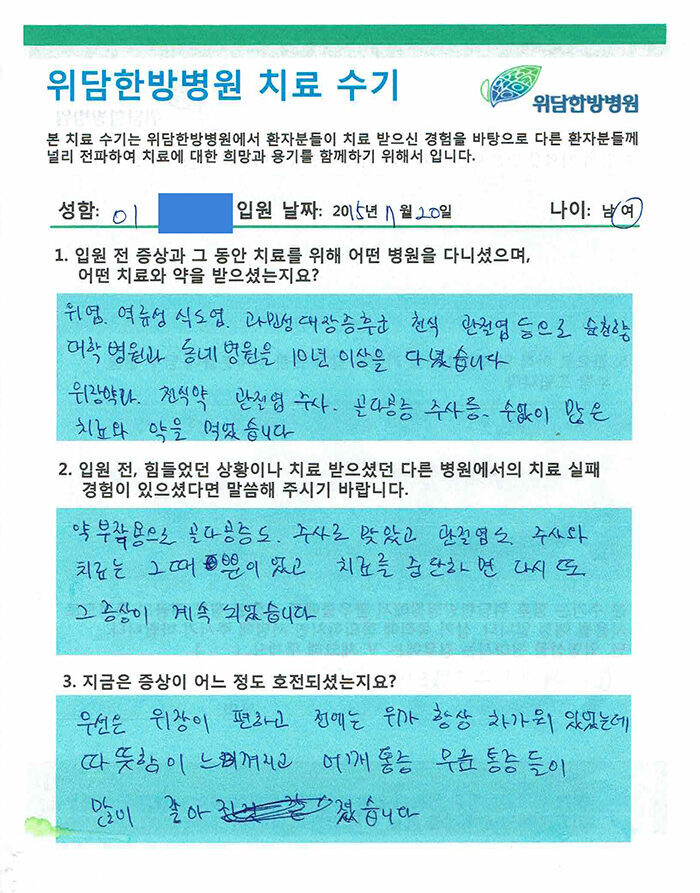 위담한방병원 치료 수기
위담한방병원
본 치료 수기는 위담한방병원에서 환자분들이 치료 받으신 경험을 바탕으로 다른 환자분들께
널리 전파하여 치료에 대한 희망과 용기를 함께하기 위해서 입니다.
성함: 이 입원 날짜: 2015년 7월 20일 나이: 남 여
1. 입원 전 증상과 그 동안 치료를 위해 어떤 병원을 다니셨으며,
어떤 치료와 약을 받으셨는지요?
위염. 역류성 식도염. 과민성대장증후군 천식 관절염 등으로 순천향
대학병원과 동네병원을 10년 이상을 다녔습니다
위장약과. 천식약 관절염 주사. 골다공증 주사를. 수없이 많은
치료와 약을 먹었습니다
2. 입원 전, 힘들었던 상황이나 치료 받으셨던 다른 병원에서의 치료 실패
경험이 있으셨다면 말씀해 주시기 바랍니다.
약 부작용으로 골다공증도. 주사로 맞았고 관절염도 주사와
치료는 그때 뿐이었고 치료를 중단하면 다시 또
그 증상이 계속 되었습니다
3. 지금은 증상이 어느 정도 호전되셨는지요?
우선은 위장이 편하고 전에는 위가 항상 차가워 있었는데
따뜻함이 느껴지고 어깨통증 무릎통증들이
많이 좋아 졌습니다